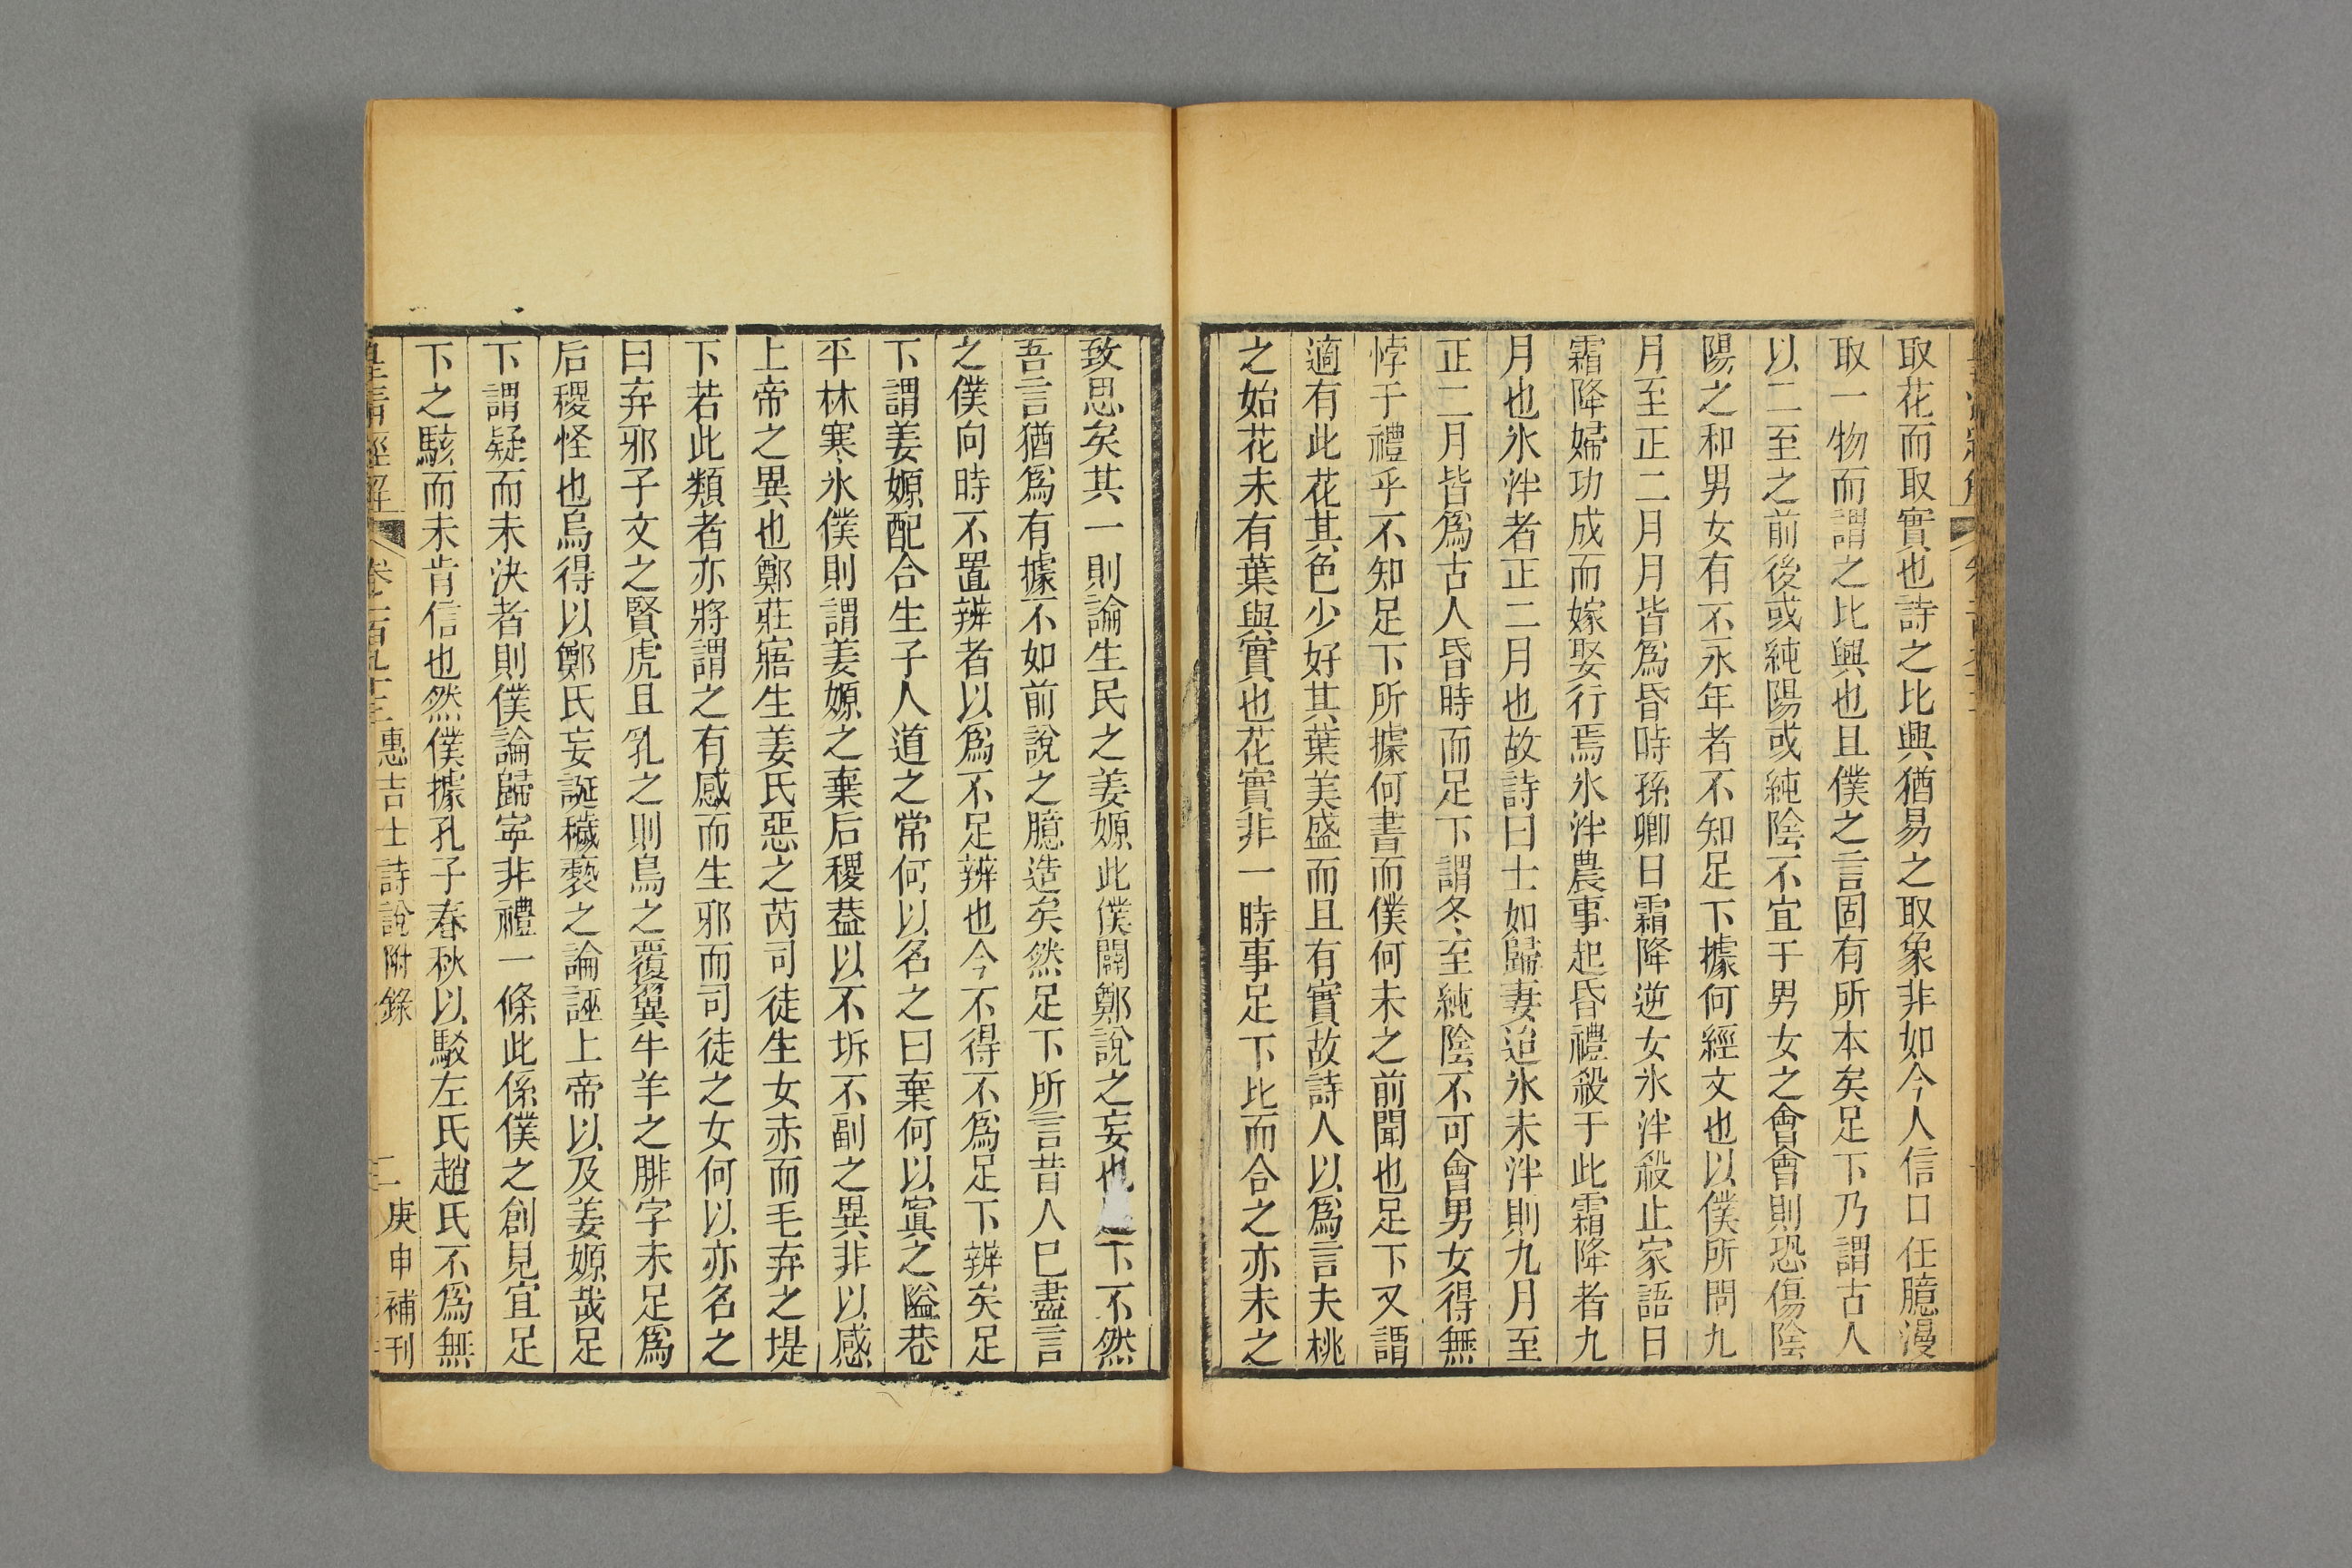 取花而取實也詩之比興猶易之取象非如今人信口任臆漫
取一物而謂之比興也且僕之言固有所本矣足下乃謂古人
以二至之前後或純陽或純陰不宜于男女之會會則恐傷陰
陽之和男女有不永年者不知足下據何經文也以僕所問九
月至正二月月皆爲昏時孫卿曰霜降逆女氷泮殺止家語曰
霜降婦功成而嫁娶行焉氷泮農事起昏禮殺于此霜降者九
月也氷泮者正二月也故詩曰士如歸妻迨氷未泮則九月至
正二月皆爲古人昏時而足下謂冬至純陰不可會男女得無
悖于禮乎不知足下所據何書而僕何未之前聞也足下又謂
適有此花其色少好其葉美盛而且有實故詩人以爲言夫桃
之始花未有葉與實也花實非一時事足下比而合之亦未之
致思矣其一則論生民之姜嫄此僕闢鄭說之妄也下不然
吾言猶爲有據不如前說之臆造矣然足下所言昔人已盡言
之僕向時不置辨者以爲不足辨也今不得不爲足下辨矣足
下謂姜嫄配合生子人道之常何以名之曰棄何以寘之隘巷
平林寒氷僕則謂姜嫄之棄后稷葢以不坼不副之異非以感
上帝之異也鄭莊寤生姜氏惡之芮司徒生女赤而毛弃之堤
下若此類者亦將謂之有感而生邪而司徒之女何以亦名之
曰弃邪子文之賢虎且乳之則鳥之覆翼牛羊之腓字未足爲
后稷怪也烏得以鄭氏妄誕穢褻之論誣上帝以及姜嫄哉足
下謂疑而未決者則僕論歸寧非禮一條此係僕之創見宜足
下之駭而未肯信也然僕據孔子春秋以駁左氏趙氏不爲無
皇清經解 卷二百九十三 惠吉士詩說附錄 二 庚申補刊